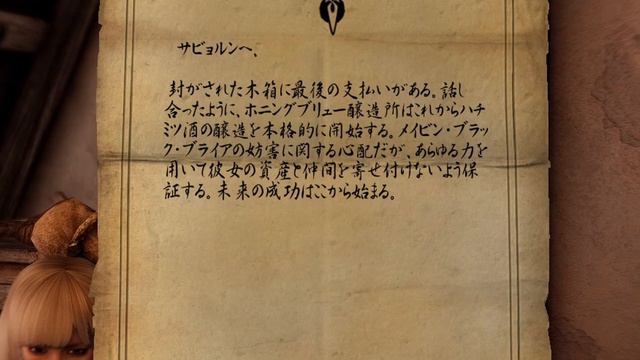 サビョルンへ、
封がされた木箱に最後の支払いがある。話し
合ったように、ホニングブリュー醸造所はこれからハチ
ミツ酒の醸造を本格的に開始する。メイビン・ブラッ
ク・ブライアの妨害に関する心配だが、あらゆる力を
用いて彼女の資産と仲間を寄せ付けないよう保
証する。未来の成功はここから始まる。